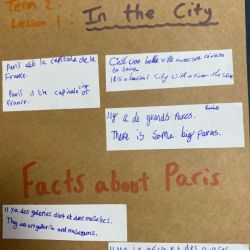 Term 2:
Lesson 1:
In the City
Paris est la capitale de la
France.
Paris is the capital of
city
France.
C'est une belle ville avec une rivière
la Seine.
It is a beautiful City with a river the
Il y a de grands parcs.
There is some big parks.
Facts about Paris
Il y a des galeries d'art et des musées.
They are art galleries and museums.
Il y a